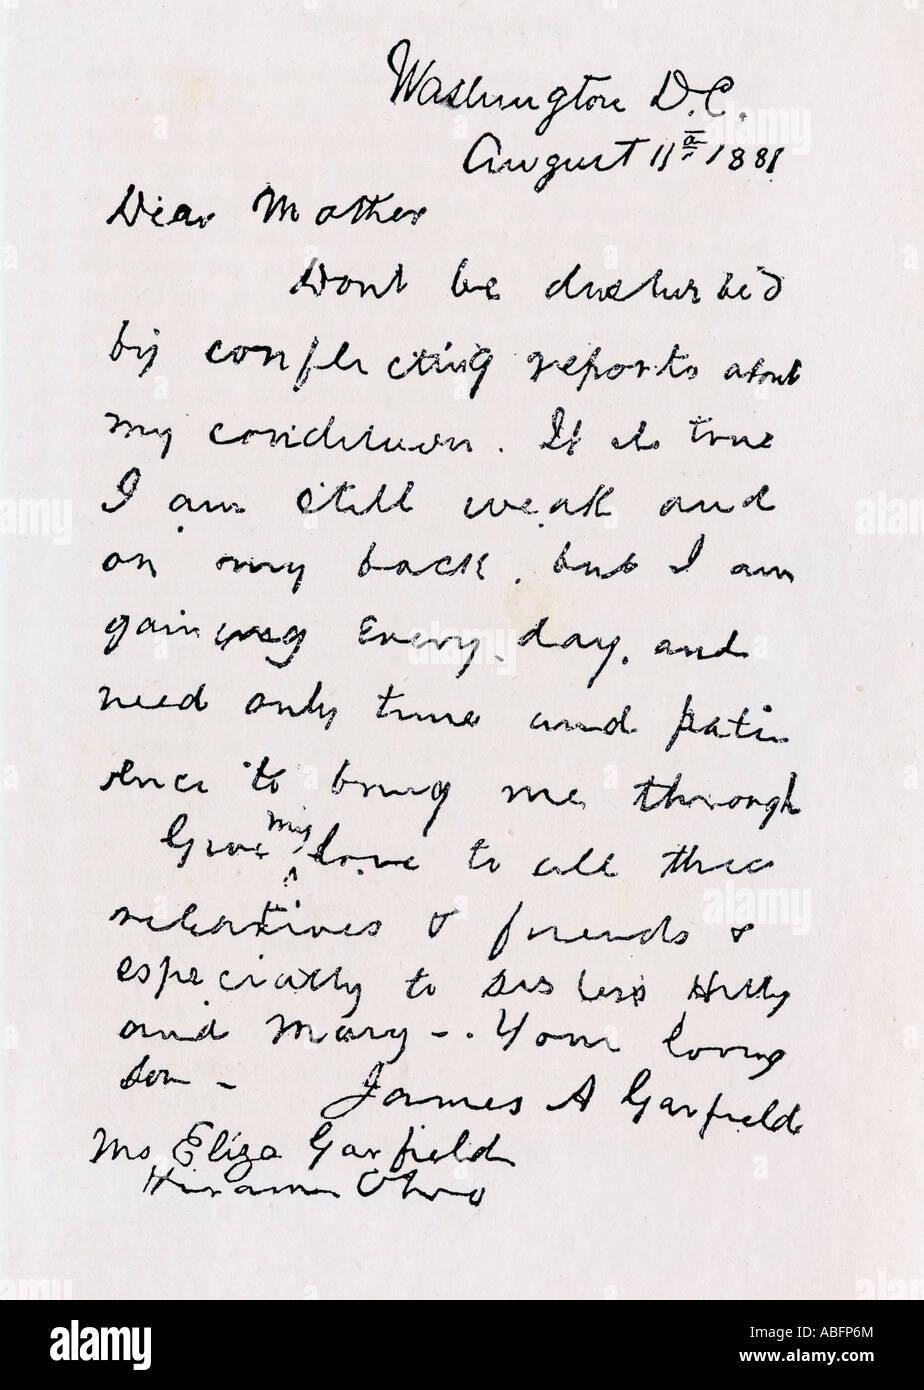 Washington D.C.
August 11th 1881
Dear Mother
Dont be disturbed
by conflicting reports about
my condition. It is true
I am still weak and
on my back, but I am
gaining every day, and
need only time and pati
ence to bring me through
Give my love to all the
relatives & friends &
especially to sisters Hitty
and Mary -. Your loving
son -
James A Garfield
Mrs Eliza Garfield
Hiram Ohio
alamy
a
Image ID: ABFP6M
www.alamy.com